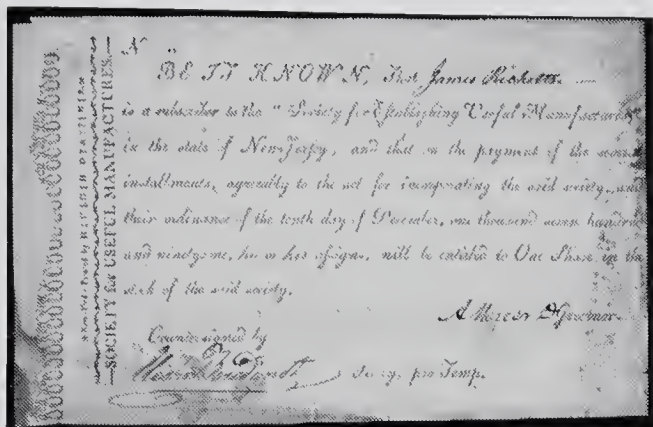 N
BE IT KNOWN, That James Ricketts
is a subscriber to the "Society for Establishing Useful Manufactures"
in the state of New Jersey, and that on the payment of the several
installments, agreeably to the act for incorporating the said society, and
their ordinance of the tenth day of December, one thousand seven hundred
and ninetyone, he or his assigns, will be entitled to One Share in the
stock of the said society.
Countersigned by
Secry. pro Temp.
SOCIETY for USEFUL MANUFACTURES.